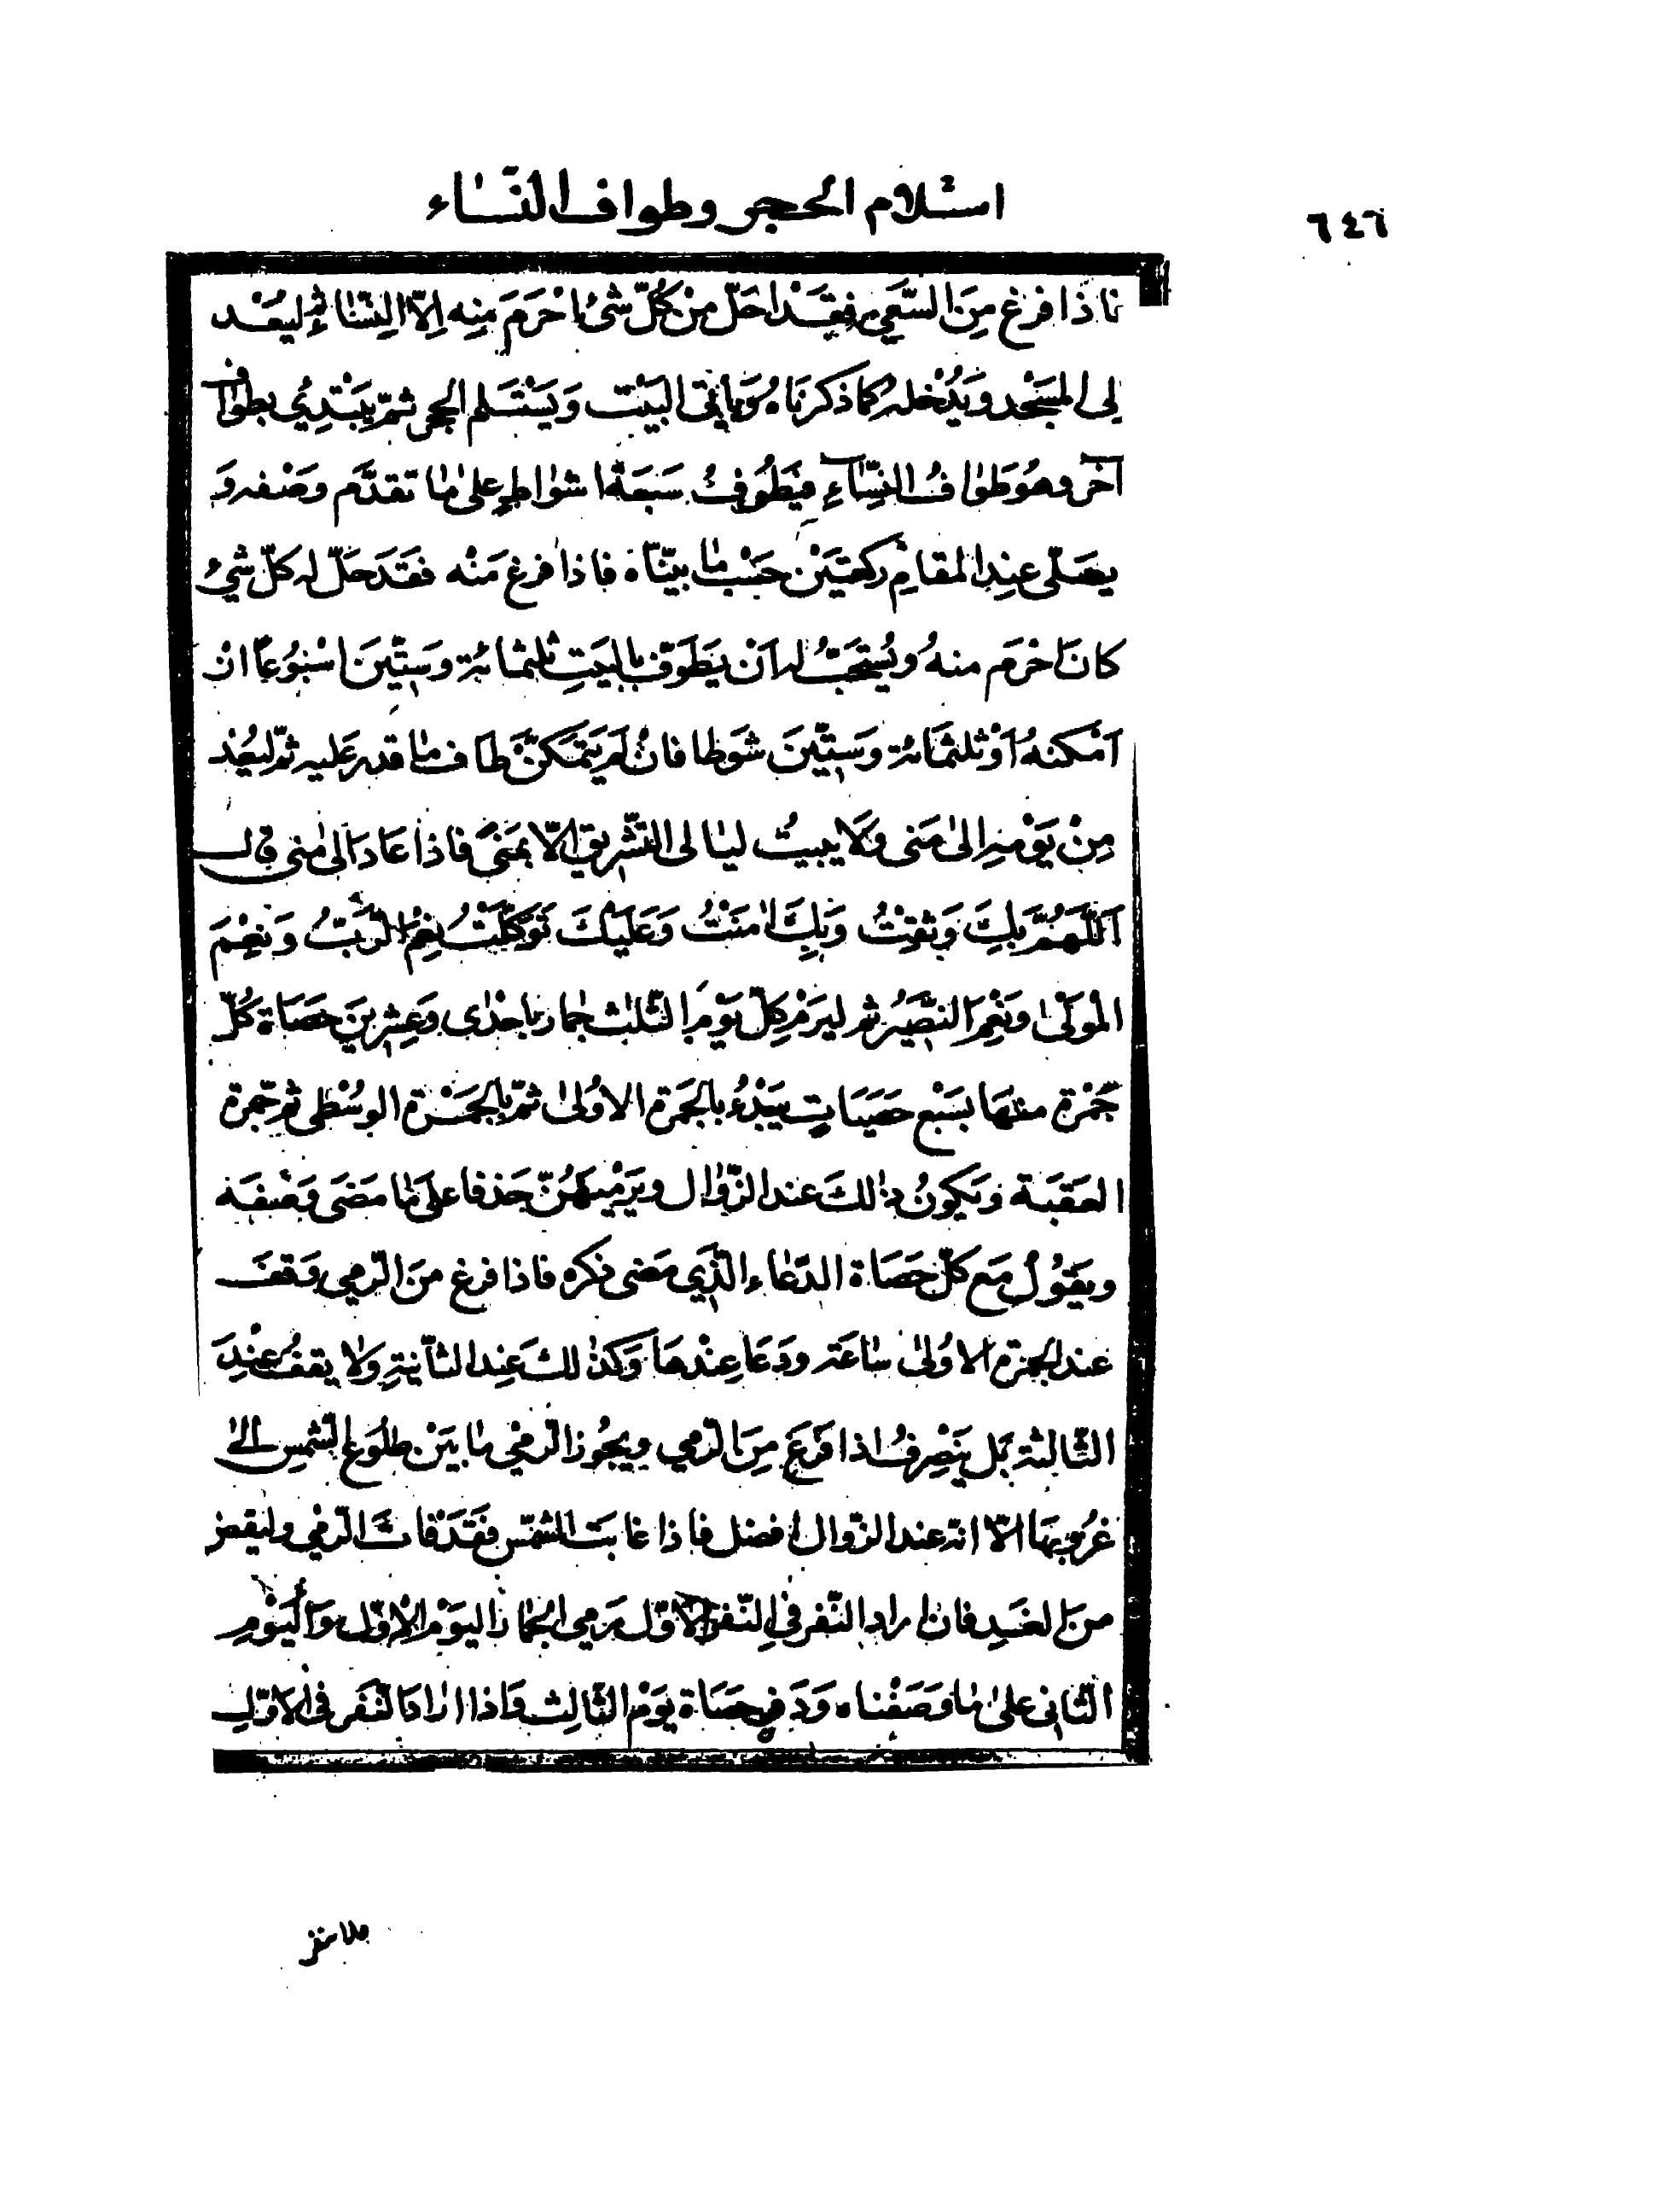 استلام الحجر وطواف النّساء
٦٤٦
فاذا فرغ مِنَ السَّعَيِ فَقَدْ احَلّ مِنْ كُلّ شئ احْرَمَ مِنِه اِلّا النِّسٰاءَ ثمِ ليَعُدْ
الِى المَسَجْد وَيَدُخْله كَما ذكرنَاهُ وَيَاتِى البَيْتَ وَيَسْتَلم الحجر ثمّ يَبْتَدِئ بطَوٰافٍ
آخَر وهوُ طَوٰافُ النِّسٰاءِ فَيَطُوفُ سَبَعَةَ اشوٰاطٍ على مٰا تقدَّم وصَفه وَ
يصَلّى عِند المقامِ ركعتيَنْ حسَبْ مٰا بينّاه فاذا فرغ مَنْه فقَدَ حَلّ له كلّ شئ
كانَ احْرَم منهُ ويُسْتَحَبُّ له اَنْ يَطَوُف بالبَيتِ ثلثمائة وَسِتّينَ اسُبْوُعاً انْ
اَمْكنهُ اَوْ ثلثمَائة وَسِتّينَ شوَطا فانْ لَم يَتَمَكّنَ طَافَ مٰا قدر عَليه ثمّ ليَعُدْ
مِنْ يَوْمِهِ الىٰ مَنى وَلَا يبيتُ ليٰالى التشّريق الّا بمنَىً فاذا عَادَ الىٰ منى قال
اَللّهَمُّ بِكَ وَثقِتْ وَبِكَ اٰمَنْتُ وَعَلَيْكَ تَوَكَّلْتُ نِعْمَ الرَّبّ وَنعِمْ
المْوَلىٰ وَنِعْمَ النصَّيرُ ثم ليَرَمِ كلّ يَوْمٍ الثّلٰث جمٰار باحْدٰى وَعِشرينَ حصَاة كلّ
جَمْرة منهَا بسَبْعِ حصَيَاتٍ يَبْدُء بالجَمرة الاوُلىٰ ثمّ بالجَمْرة الوسُطْى ثم جَمرة
العَقبَة ويَكونُ ذٰلكَ عند الزّوٰال ويَرَمْيهَنّ حَذفا علَى مٰا مَضَى وَصْفه
ويقَوُلُ مَع كلّ حصَاة الدّعٰاء الّذِي مَضى ذكره فاذا فرغ منَ الرّمى وَقفَ
عند الجمرة الاوُلىٰ سٰاعَة ودَعَا عِنْدهَا وَكذٰلكَ عِند الثّانيةِ وَلٰا يقفُ عنْدِ
الثّالثة بَل يَنصِرفُ اذا فرَغَ مِنَ الرّمى ويجُوز الرمْي مٰا بَيَنْ طلُوَع الشّمسِ الىٰ
غرُوبهَا الّا انّه عند الزّوال افضل فاذا غابَت الشمّس فقَدَ فاتَ الرّمي وليقض
منَ الغَدِ فان اراد النّفر فى النّفر الاوّل رَمى الجمٰار اليَوْمِ الْاوّل وَاليَوْمِ
الثّانى علىٰ مٰا وصَفْناه وَدَفن حصَاة يوَم الثّالِث وَاذا ارٰادَ النّفر فى الاوّل
فلا ينفر